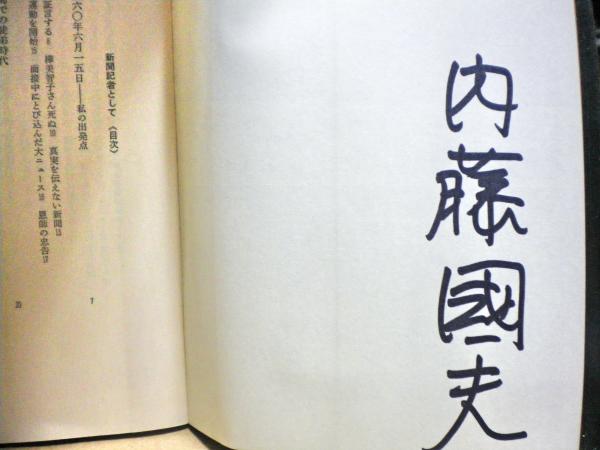 内藤國夫
新聞記者として〈目次〉
六〇年六月一五日——私の出発点
7
証言する8 樺美智子さん死ぬ10 真実を伝えない新聞13
運動を開始15 面接中にとび込んだ大ニュース16 恩師の忠告17
での徒弟時代
20